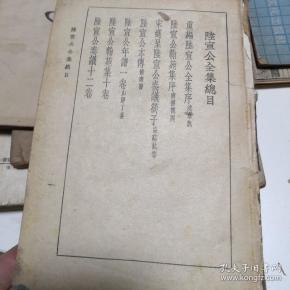 陸宣公全集總目
重編陸宣公全集序
陸宣公翰苑集序
宋朝呈陸宣公奏議劄子
陸宣公本傳
陸宣公年譜一卷
陸宣公制誥十卷
陸宣公奏議十二卷
陸宣公全集總目
孔夫子旧书网